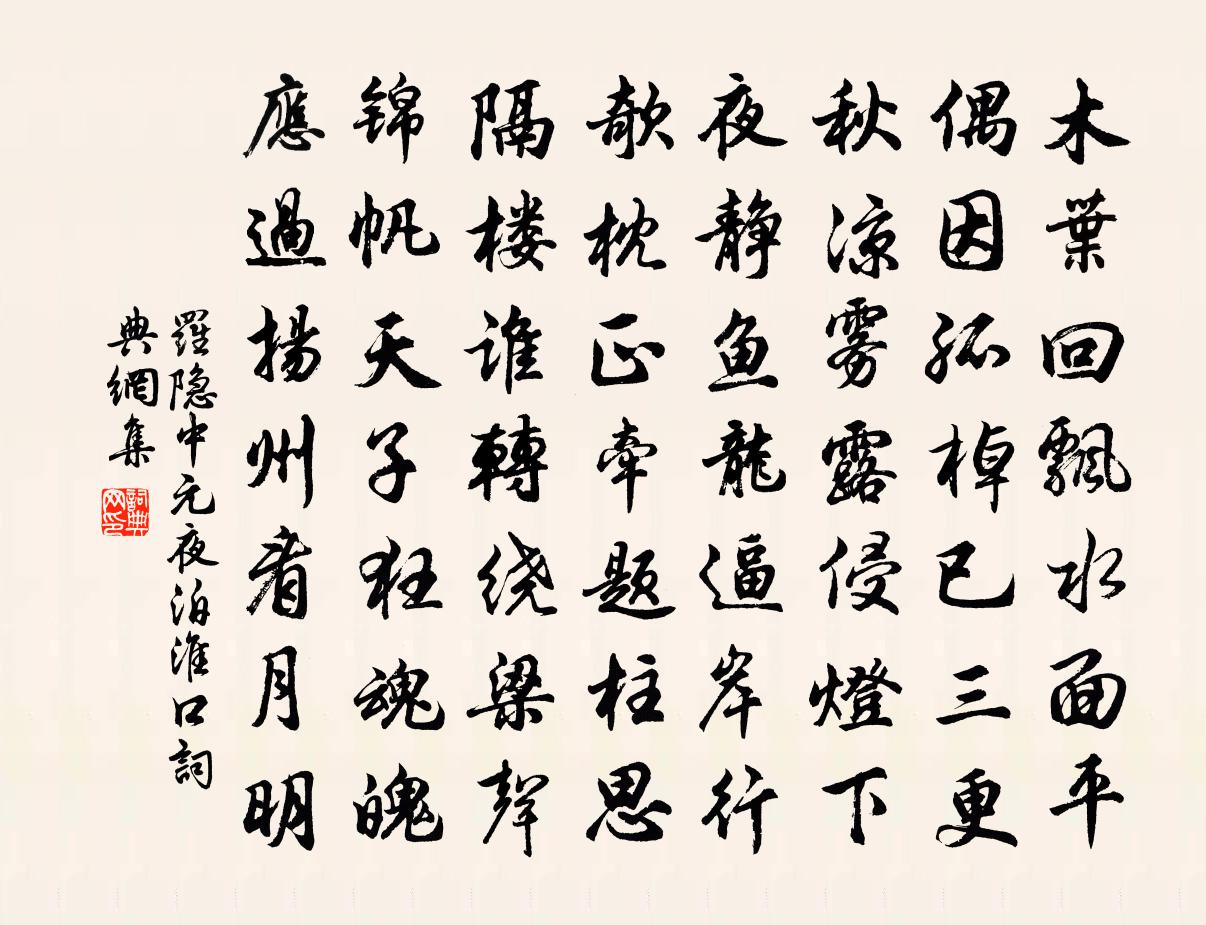 木葉回飄水面平
偶因孤棹已三更
秋涼雾露侵燈下
夜静鱼龍逼岸行
欹枕正牵题柱思
隔楼谁轉绕梁聲
锦帆天子狂魂魄
應過揚州看月明
羅隐中元夜泊淮口詞
典網集
詞典网印